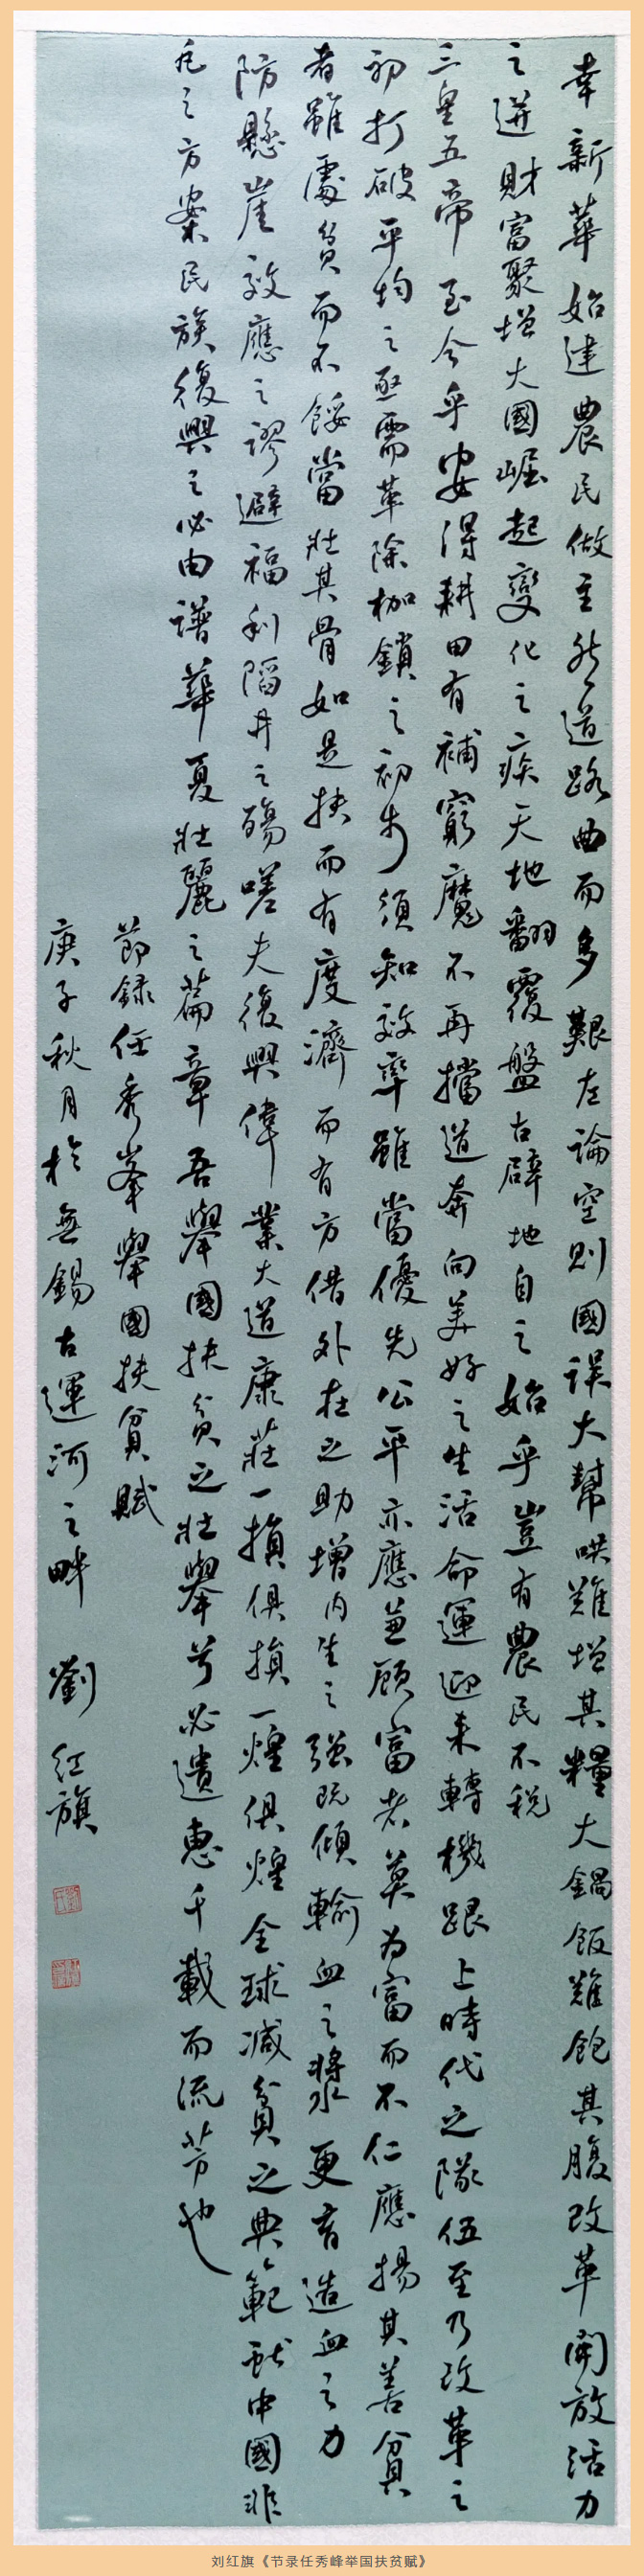 幸新華始建農民做主然道路曲而多艱左論空則國误大幫哄難增其糧大鍋飯難飽其腹改革開放活力
之迸財富聚增大國崛起變化之疾天地翻覆盤古辟地自之始乎豈有農民不税
三皇五帝至今乎安得耕田有補窮魔不再擋道奔向美好之生活命運迎来轉機跟上時代之隊伍至乃改革之
初打破平均之亟需革除枷鎖之初步須知效率雖當優先公平亦應兼顾富者莫为富而不仁應揚其善貧
者雖處貧而不餒當壯其骨如是扶而有度濟而有方借外在之助增内生之强既傾輸血之漿更育造血之力
防懸崖效應之謬避福利陷井之殤嗟夫復興偉業大道康莊一損俱損一煌俱煌全球减貧之典範獻中國非
凡之方案民族復興之必由譜華夏壯麗之篇章吾舉國扶貧之壯舉兮必遺惠千載而流芳也
節録任秀峯舉國扶貧賦
庚子秋月於無錫古運河之畔 劉红旗
刘红旗《节录任秀峰举国扶贫赋》